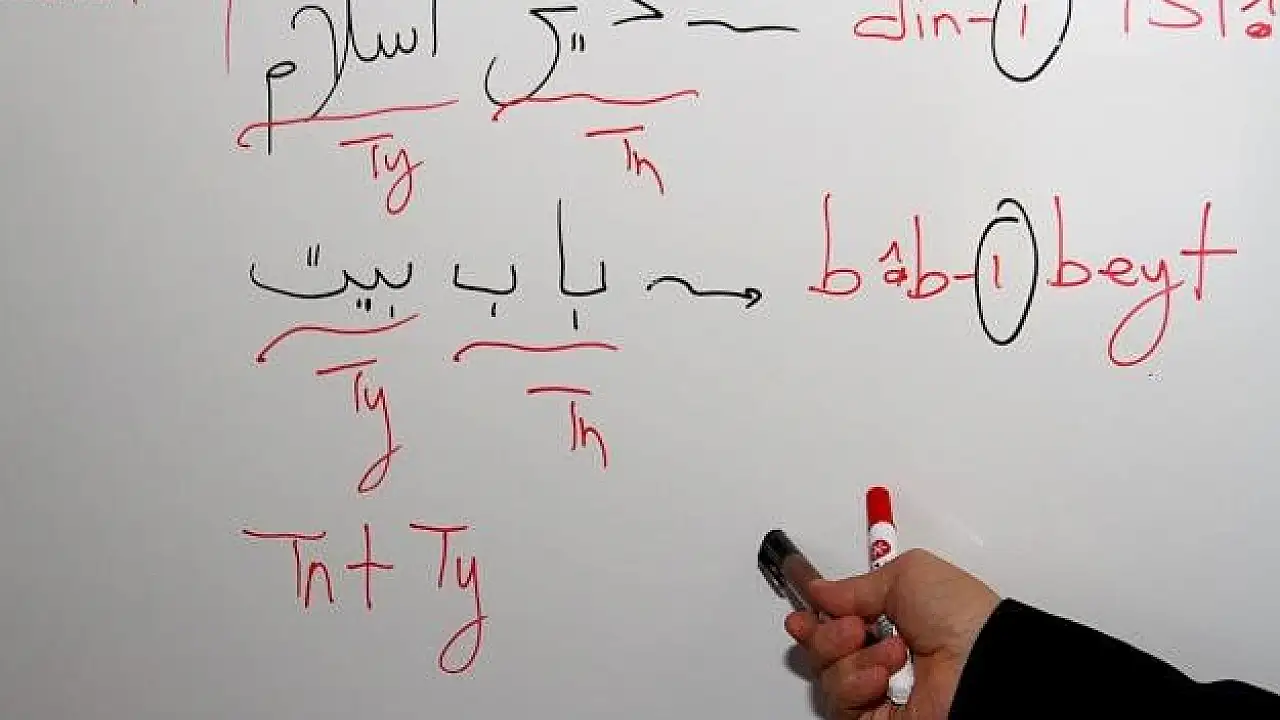 دين اسلام din-i İslâ
Tn Ty
باب بيت bâb-ı beyt
Tn Ty
Tn + Ty